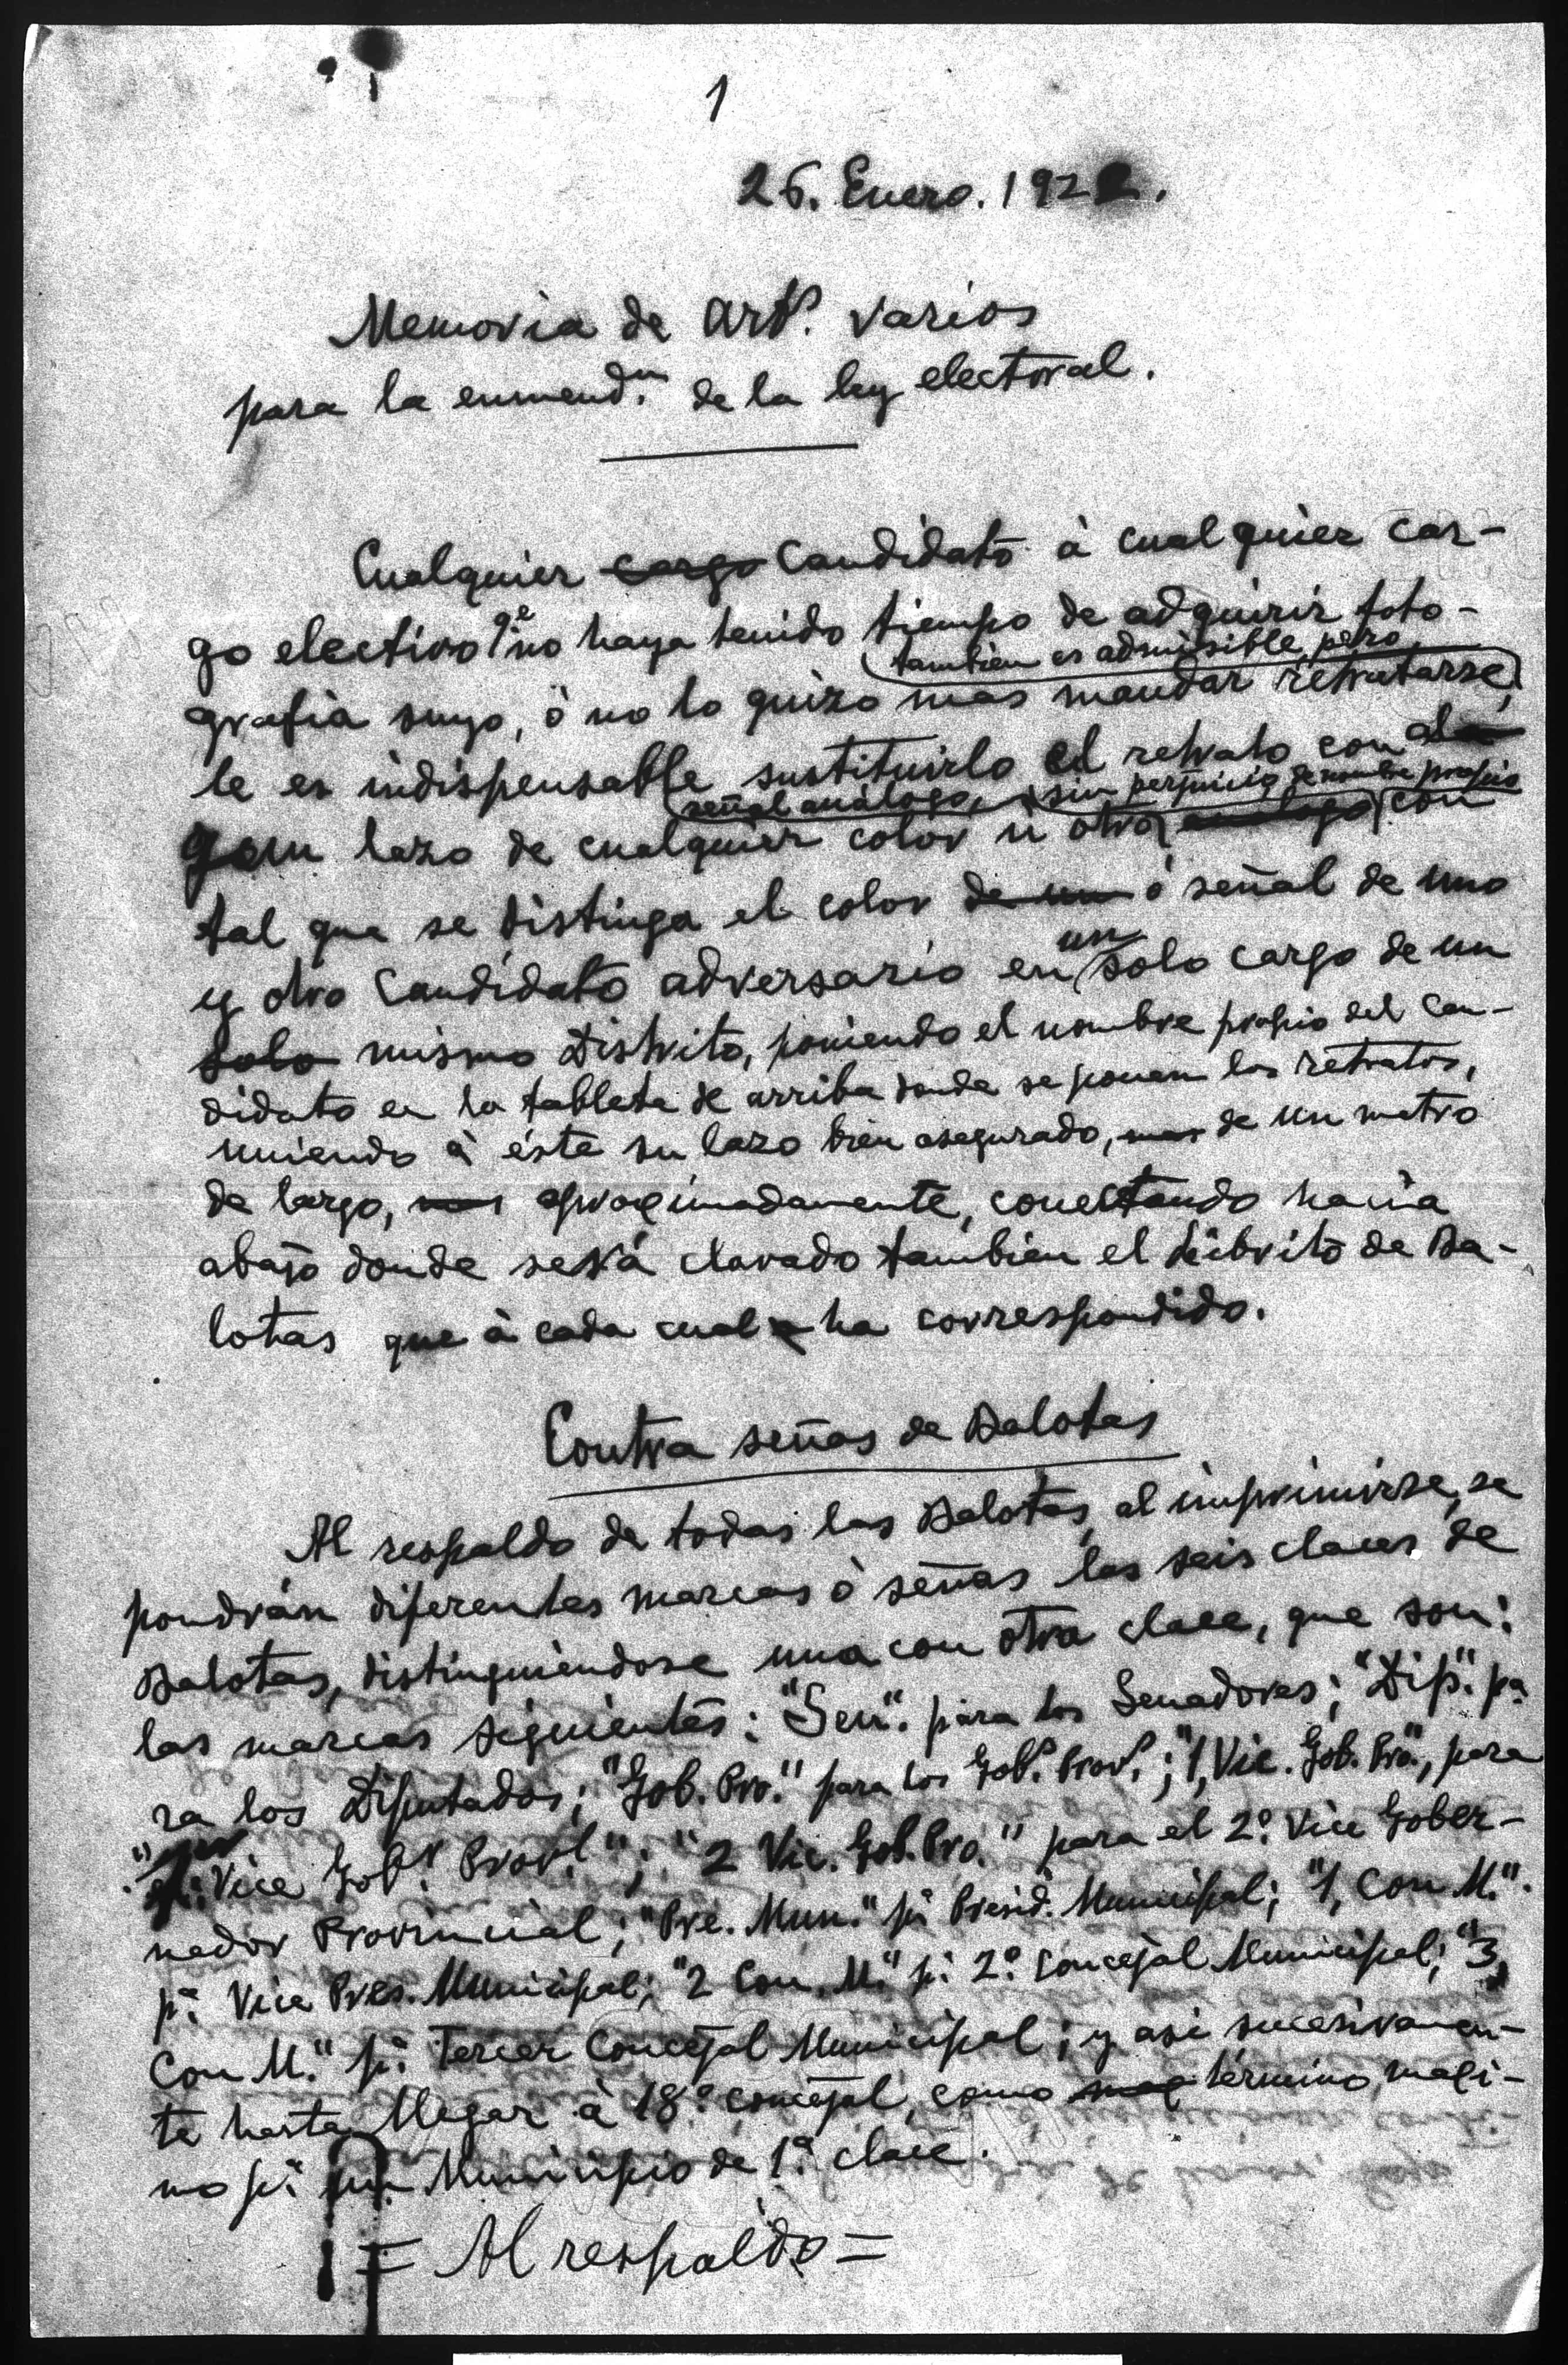 1
26. Enero. 1922.
Memoria de artˢ. varios
para la enmendᵒⁿ. de la ley electoral.
Cualquier cargo Candidato à cualquier car-
go electivo qᵉ no haya tenido tiempo de adquirir foto-
tambien es admisible, pero
grafia suyo, ò no lo quizo mas mandar retratarse,
le es indispensable sustituirlo el retrato con al
señal análogo, sin perjuicio de nombre propio
gun lazo de cualquier color ù otro analogo con
tal que se distinga el color de un ò señal de uno
y otro Candidato adversario en un solo cargo de un
solo mismo Distrito, poniendo el nombre propio del Can-
didato en la tableta de arriba donde se ponen los retratos,
uniendo à éste su lazo bien asegurado, mas de un metro
de largo, mas aproximadamente, conectando hacia
abajo donde será clavado tambien el librito de Ba-
lotas que à cada cual ha correspondido.
Contra señas de Balotas
Al respaldo de todas las Balotas, al imprimirse, se
pondrán diferentes marcas ò señas las seis claces de
Balotas, distinguiendose una con otra clace, que son:
las marcas siguientes: "Sen". para los Senadores; "Dip." pᵃ
ra los Diputados; "Gob. Pro." para los Gobˢ. Provˢ.; "1, Vic. Gob. Pro.", para
Vice Gobʳ. Provˡ."; "2 Vic. Gob. Pro." para el 2º. Vice Gober-
nador Provincial; "Pre. Mun." pᵃ. Presid. Municipal; "1, Con M.".
pᵃ. Vice Pres. Municipal; "2 Con. M." pᵃ. 2º. Concejal Municipal; "3,
Con M." pᵃ. Tercer Concejal Municipal; y asi sucesivamen-
te hasta llegar à 18º concejal, como max término maxi-
mo pᵃ. un Municipio de 1ª. clace.
= Al respaldo =